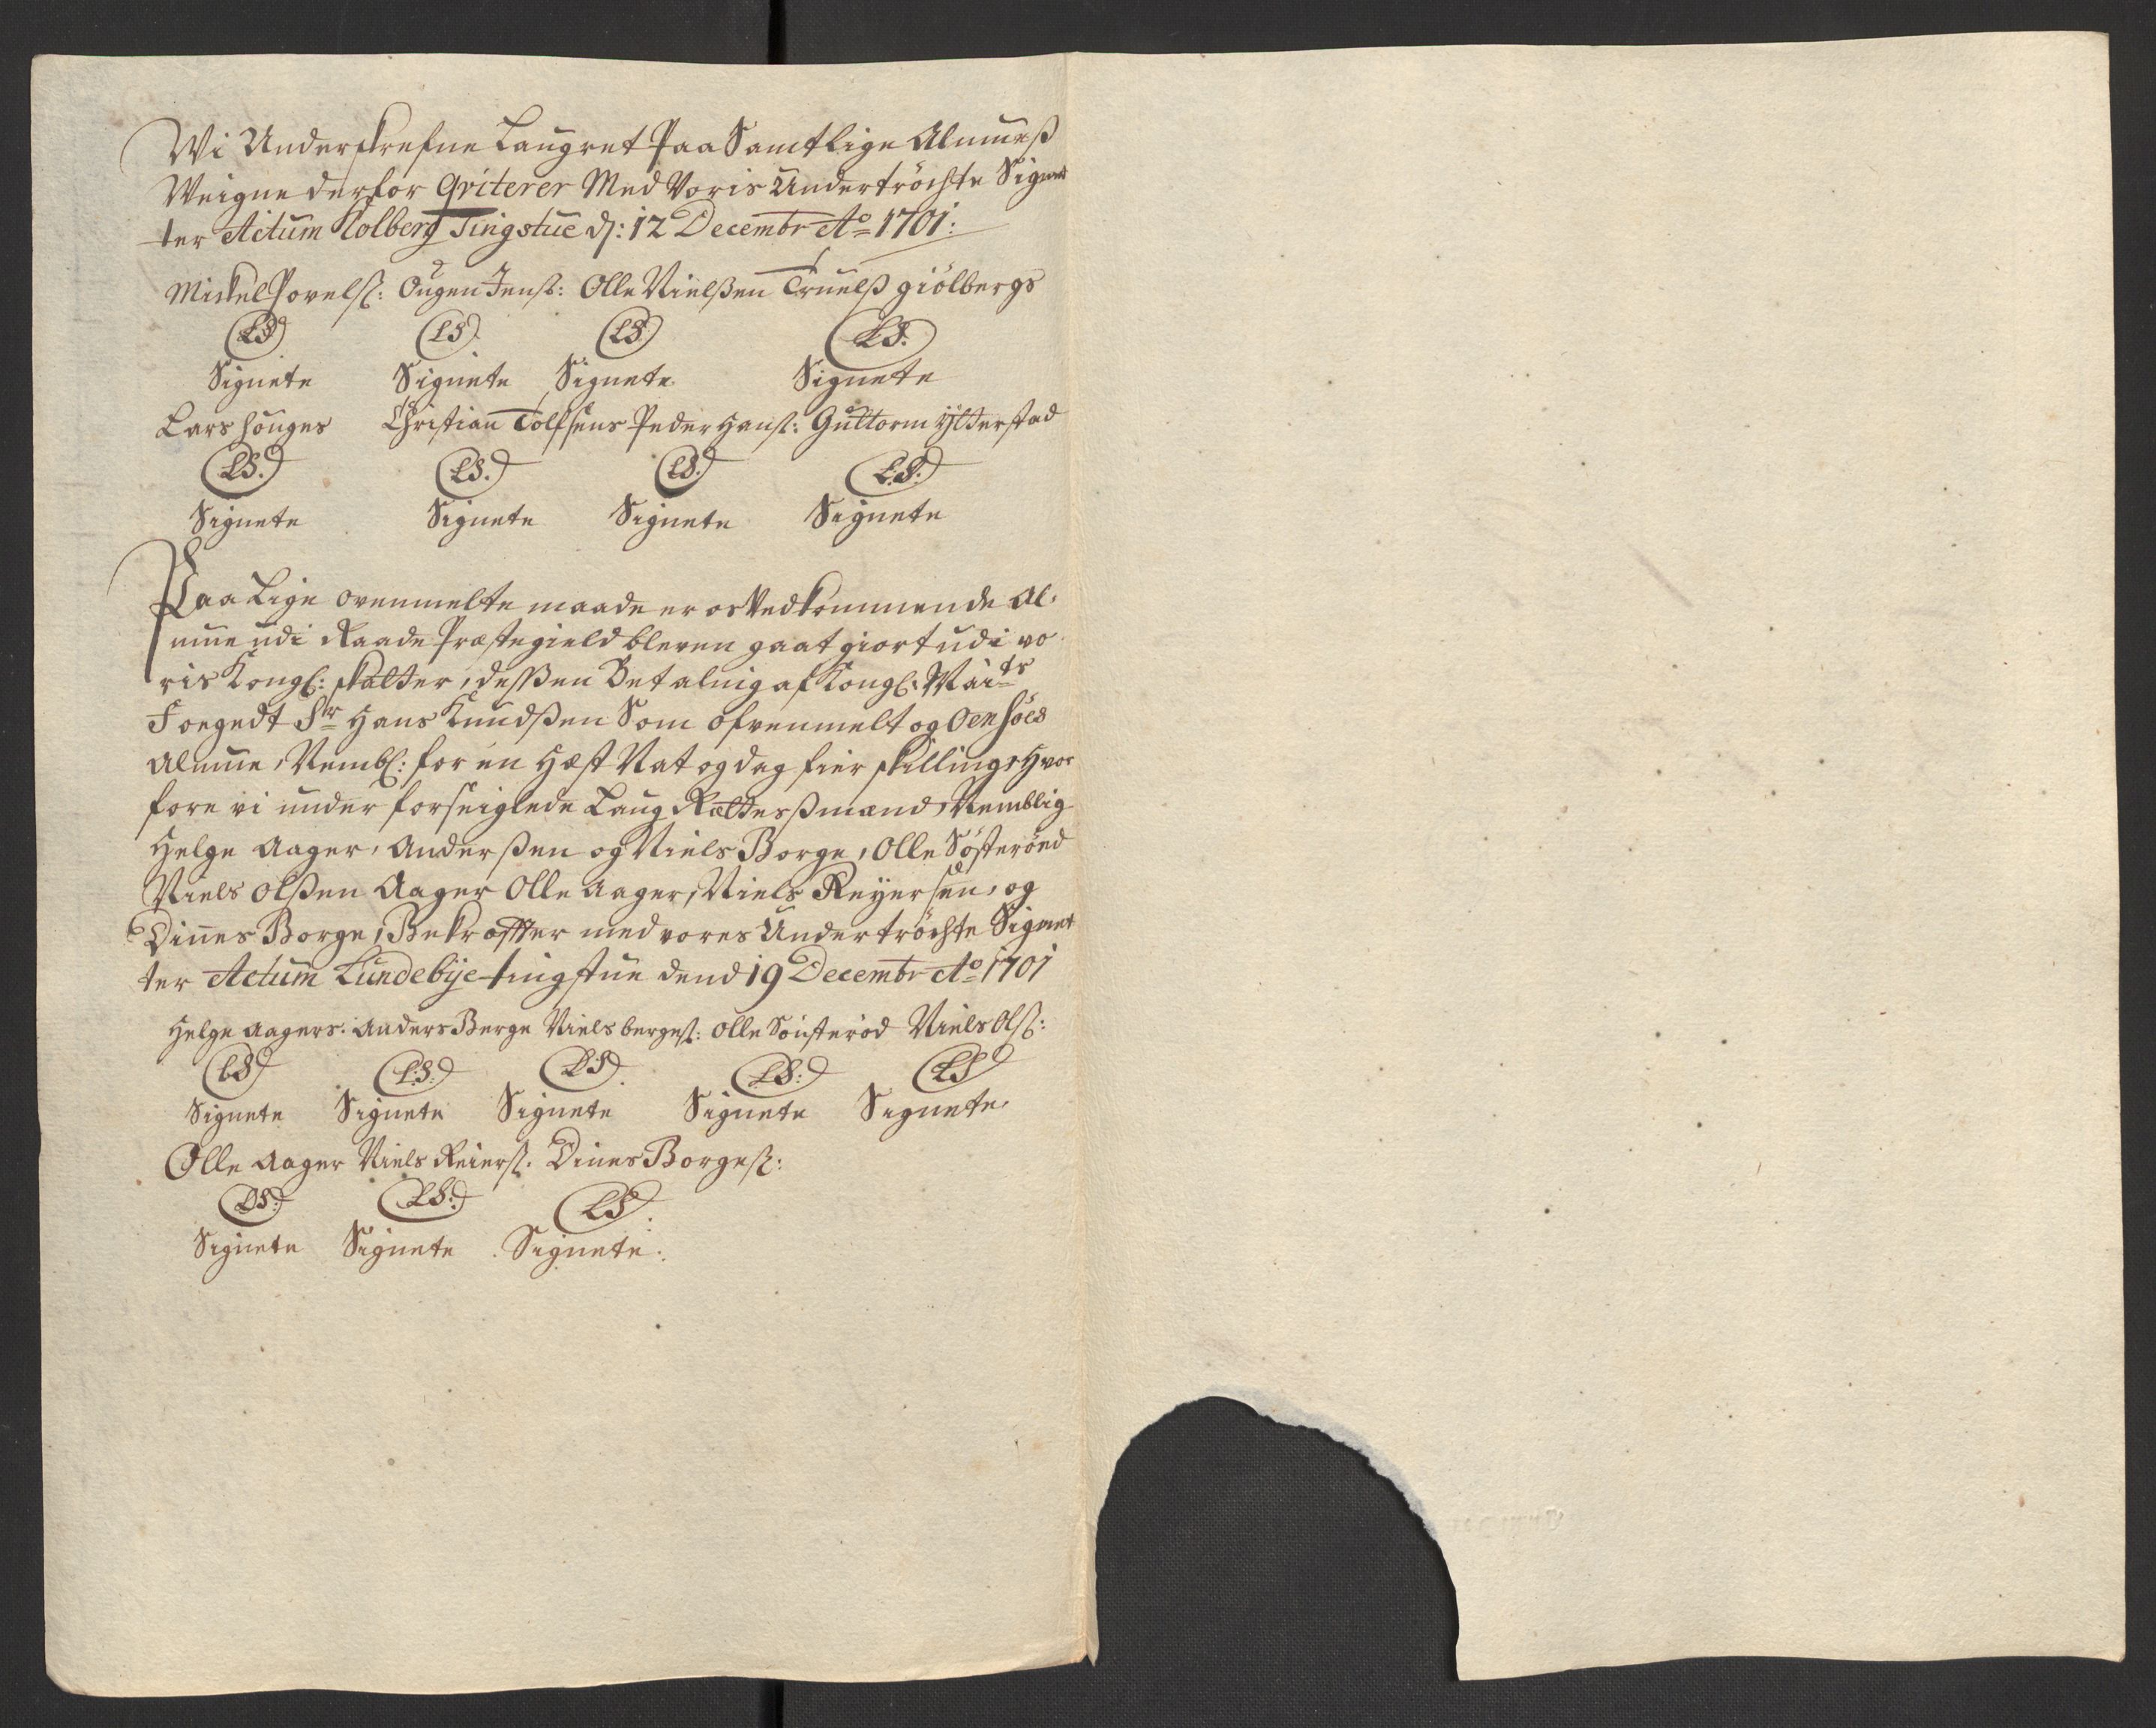 Wi Underskrefne Laugret Paa Samtlige Almueß
Weigne derfor qviterer Med Voris Undertröchte Signet
ter Actum Kolberg Tingstue d: 12 Decembr Ao 1701:
Mickel Povelß: Ougen Jenß: Olle Nielßen Truelß giölbergs
LS LS LS LS.
Signete Signete Signete Signete
Lars houges Christian Tolfsens Peder Hanß: Guttorm ÿltterstad
LS. LS. LS. L.S.
Signete Signete Signete Signete
Paa Lige ovenmelte maade er os Vedkommende Al-
mue udi Raade Præstegield bleven gaat giort udi vo
ris Kongl: skatter, deßen Betalnig af Kongl: Maits
Foegedt Sr Hans Knudßen Som ofvenmelt og Oensöes
Almue, Nembl: for en Hæst Nat og dag fier skillings Hvor
fore vi under forseiglede Laug Rætteßmænd, Nemblig
Helge Aager, Anderßen og Niels Borge, Olle Söfteröed
Niels Olßen Aager Olle Aager, Niels Reÿersen, og
Dines Borge, Bekræffter med vores Undertröchte Signet
ter Actum Lundebÿe tingstue dend 19 Decembr Ao 1701
Helge Aagers. Anders Berge Niels bergeß: Olle Söisteröd Niels Olß:
LS L:S: LS LS: LS
Signete Signete Signete Signete Signete
Olle Aager Niels Reierß. Dines Borgeß:
LS: LS: LS
Signete Signete Signete